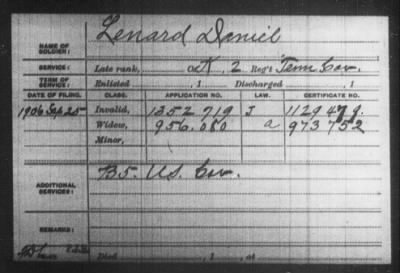 Lenard Daniel
NAME OF SOLDIER:
SERVICE: Late rank, Co. K, 2 Reg't Tenn Cav.
TERM OF SERVICE: Enlisted , 1 Discharged , 1
DATE OF FILING. CLASS. APPLICATION NO. LAW. CERTIFICATE NO.
1906 Sep 25 Invalid, 1352 719 J 1129 479.
Widow, 956.080 a 973 752
Minor,
ADDITIONAL SERVICES: B5. U.S. Cav.
REMARKS:
Died , 1 , at